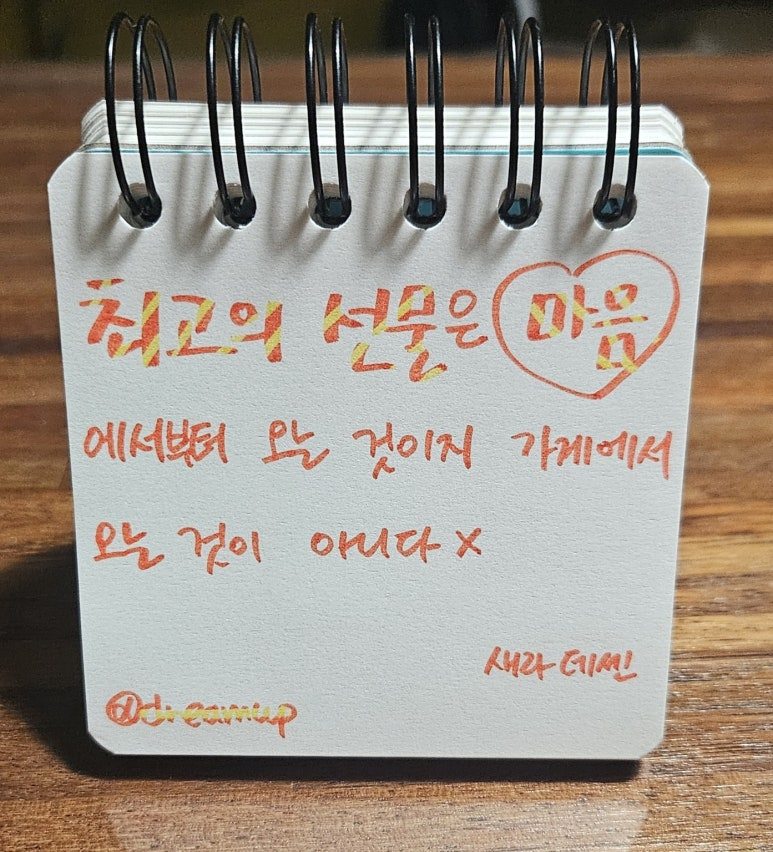 최고의 선물은 마음
에서부터 오는 것이지 가게에서
오는 것이 아니다 X
새라 데센
@dreamup